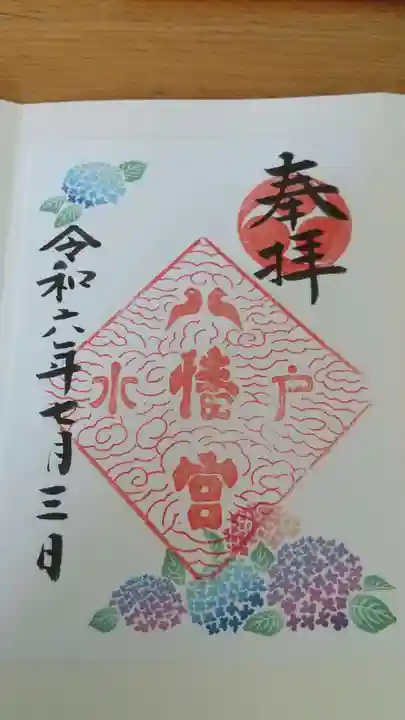 奉拝
水戸
八幡宮
令和六年七月三日